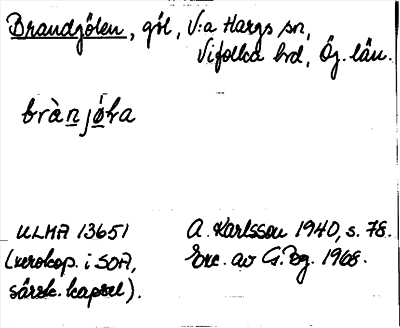 Brandgölen, göl, V:a Hargs sn,
Vifolka hrd, Ög. län.
brànjó̱ka
ULMA 13651
(xerokop. i SOA,
särsk. kapsel).
A. Karlsson 1940, s. 78.
Exc. av G. Bg. 1968.